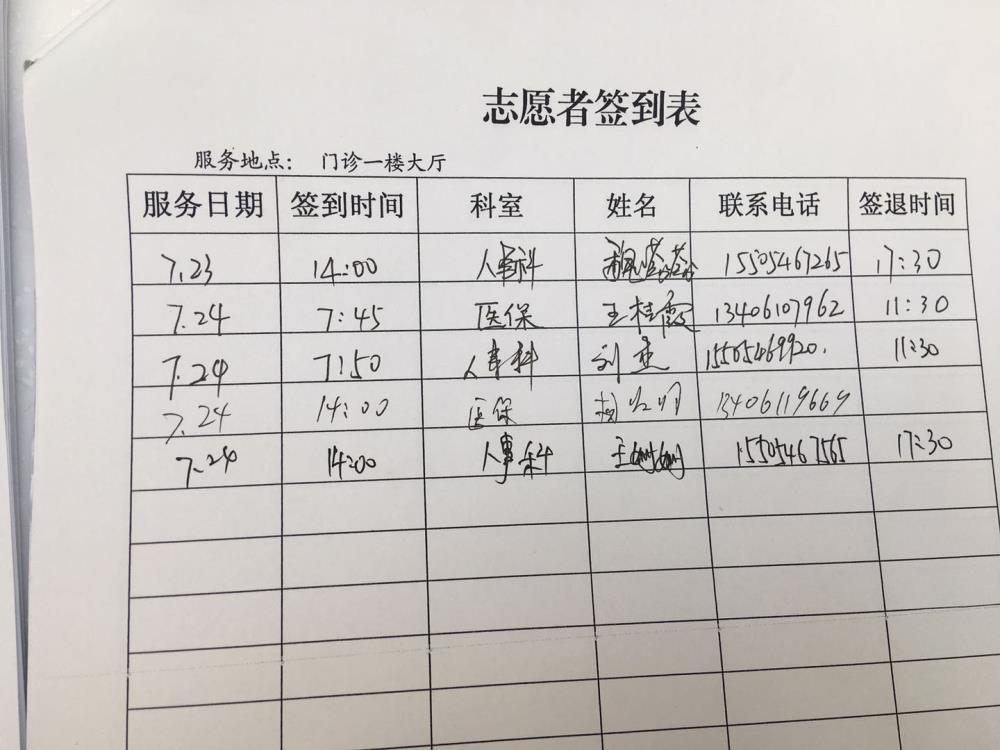 志愿者签到表
服务地点： 门诊一楼大厅
服务日期 签到时间 科室 姓名 联系电话 签退时间
7.23 14:00 人事科 15505467265 17:30
7.24 7:45 医保 王桂霞 13406107962 11:30
7.24 7:50 人事科 刘重 15505469920. 11:30
7.24 14:00 医保 13406119669
7.24 14:00 人事科 王姗姗 15505467565 17:30